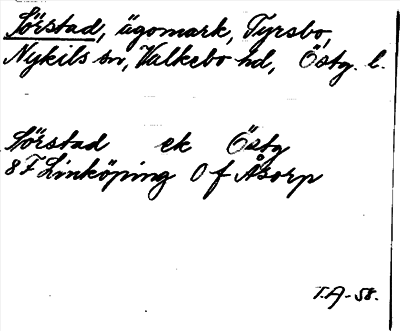 Sörstad, ägomark, Tyrsbo,
Nykils sn, Valkebo hd, Östg. l.
Sörstad ek Östg
8F Linköping 0 f Åsorp
T.A-58.